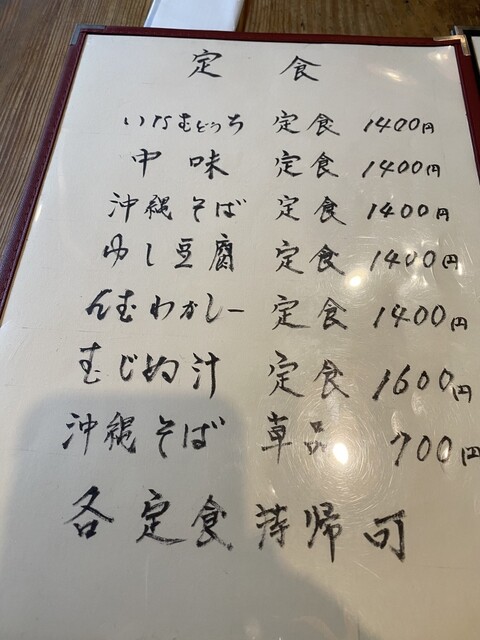 定食
いなむどぅち 定食 1400円
中味 定食 1400円
沖縄そば 定食 1400円
ゆし豆腐 定食 1400円
んむわかしー 定食 1400円
むじぬ汁 定食 1600円
沖縄そば 単品 700円
各定食 持帰可